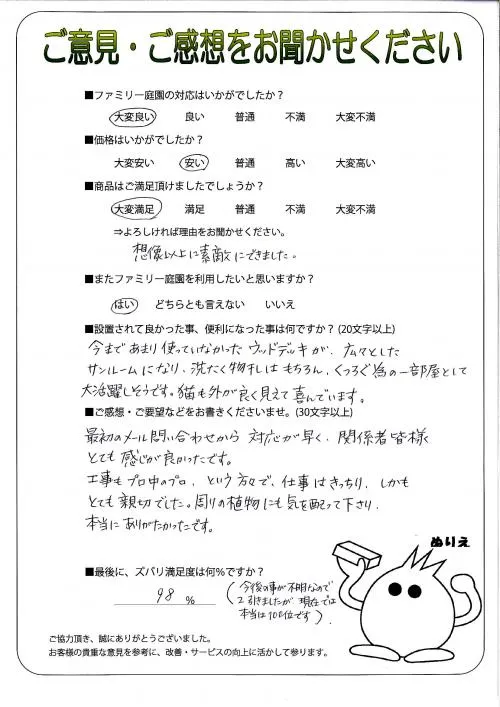 ご意見・ご感想をお聞かせください
■ファミリー庭園の対応はいかがでしたか?
大変良い 良い 普通 不満 大変不満
■価格はいかがでしたか?
大変安い 安い 普通 高い 大変高い
■商品はご満足頂けましたでしょうか?
大変満足 満足 普通 不満 大変不満
⇒よろしければ理由をお聞かせください。
想像以上に素敵にできました。
■またファミリー庭園を利用したいと思いますか?
はい どちらとも言えない いいえ
■設置されて良かった事、便利になった事は何ですか? (20文字以上)
今まであまり使っていなかった ウッドデッキが、広々とした
サンルームになり、洗たく物干しはもちろん、くつろぐ為の一部屋として
大活躍しそうです。猫も外が良く見えて喜んでいます。
■ご感想・ご要望などをお書きくださいませ。(30文字以上)
最初のメール問い合わせから 対応が早く、関係者皆様
とても 感じが良かったです。
工事もプロ中のプロ、という方々で、仕事はきっちり、しかも
とても親切でした。周りの植物にも気を配って下さり、
本当に ありがたかったです。
ぬりえ
■最後に、ズバリ満足度は何%ですか?
98 %
(今後の事が不明なので
2引きましたが 現在では
本当は100位です)。
ご協力頂き、誠にありがとうございました。
お客様の貴重な意見を参考に、改善・サービスの向上に活かして参ります。